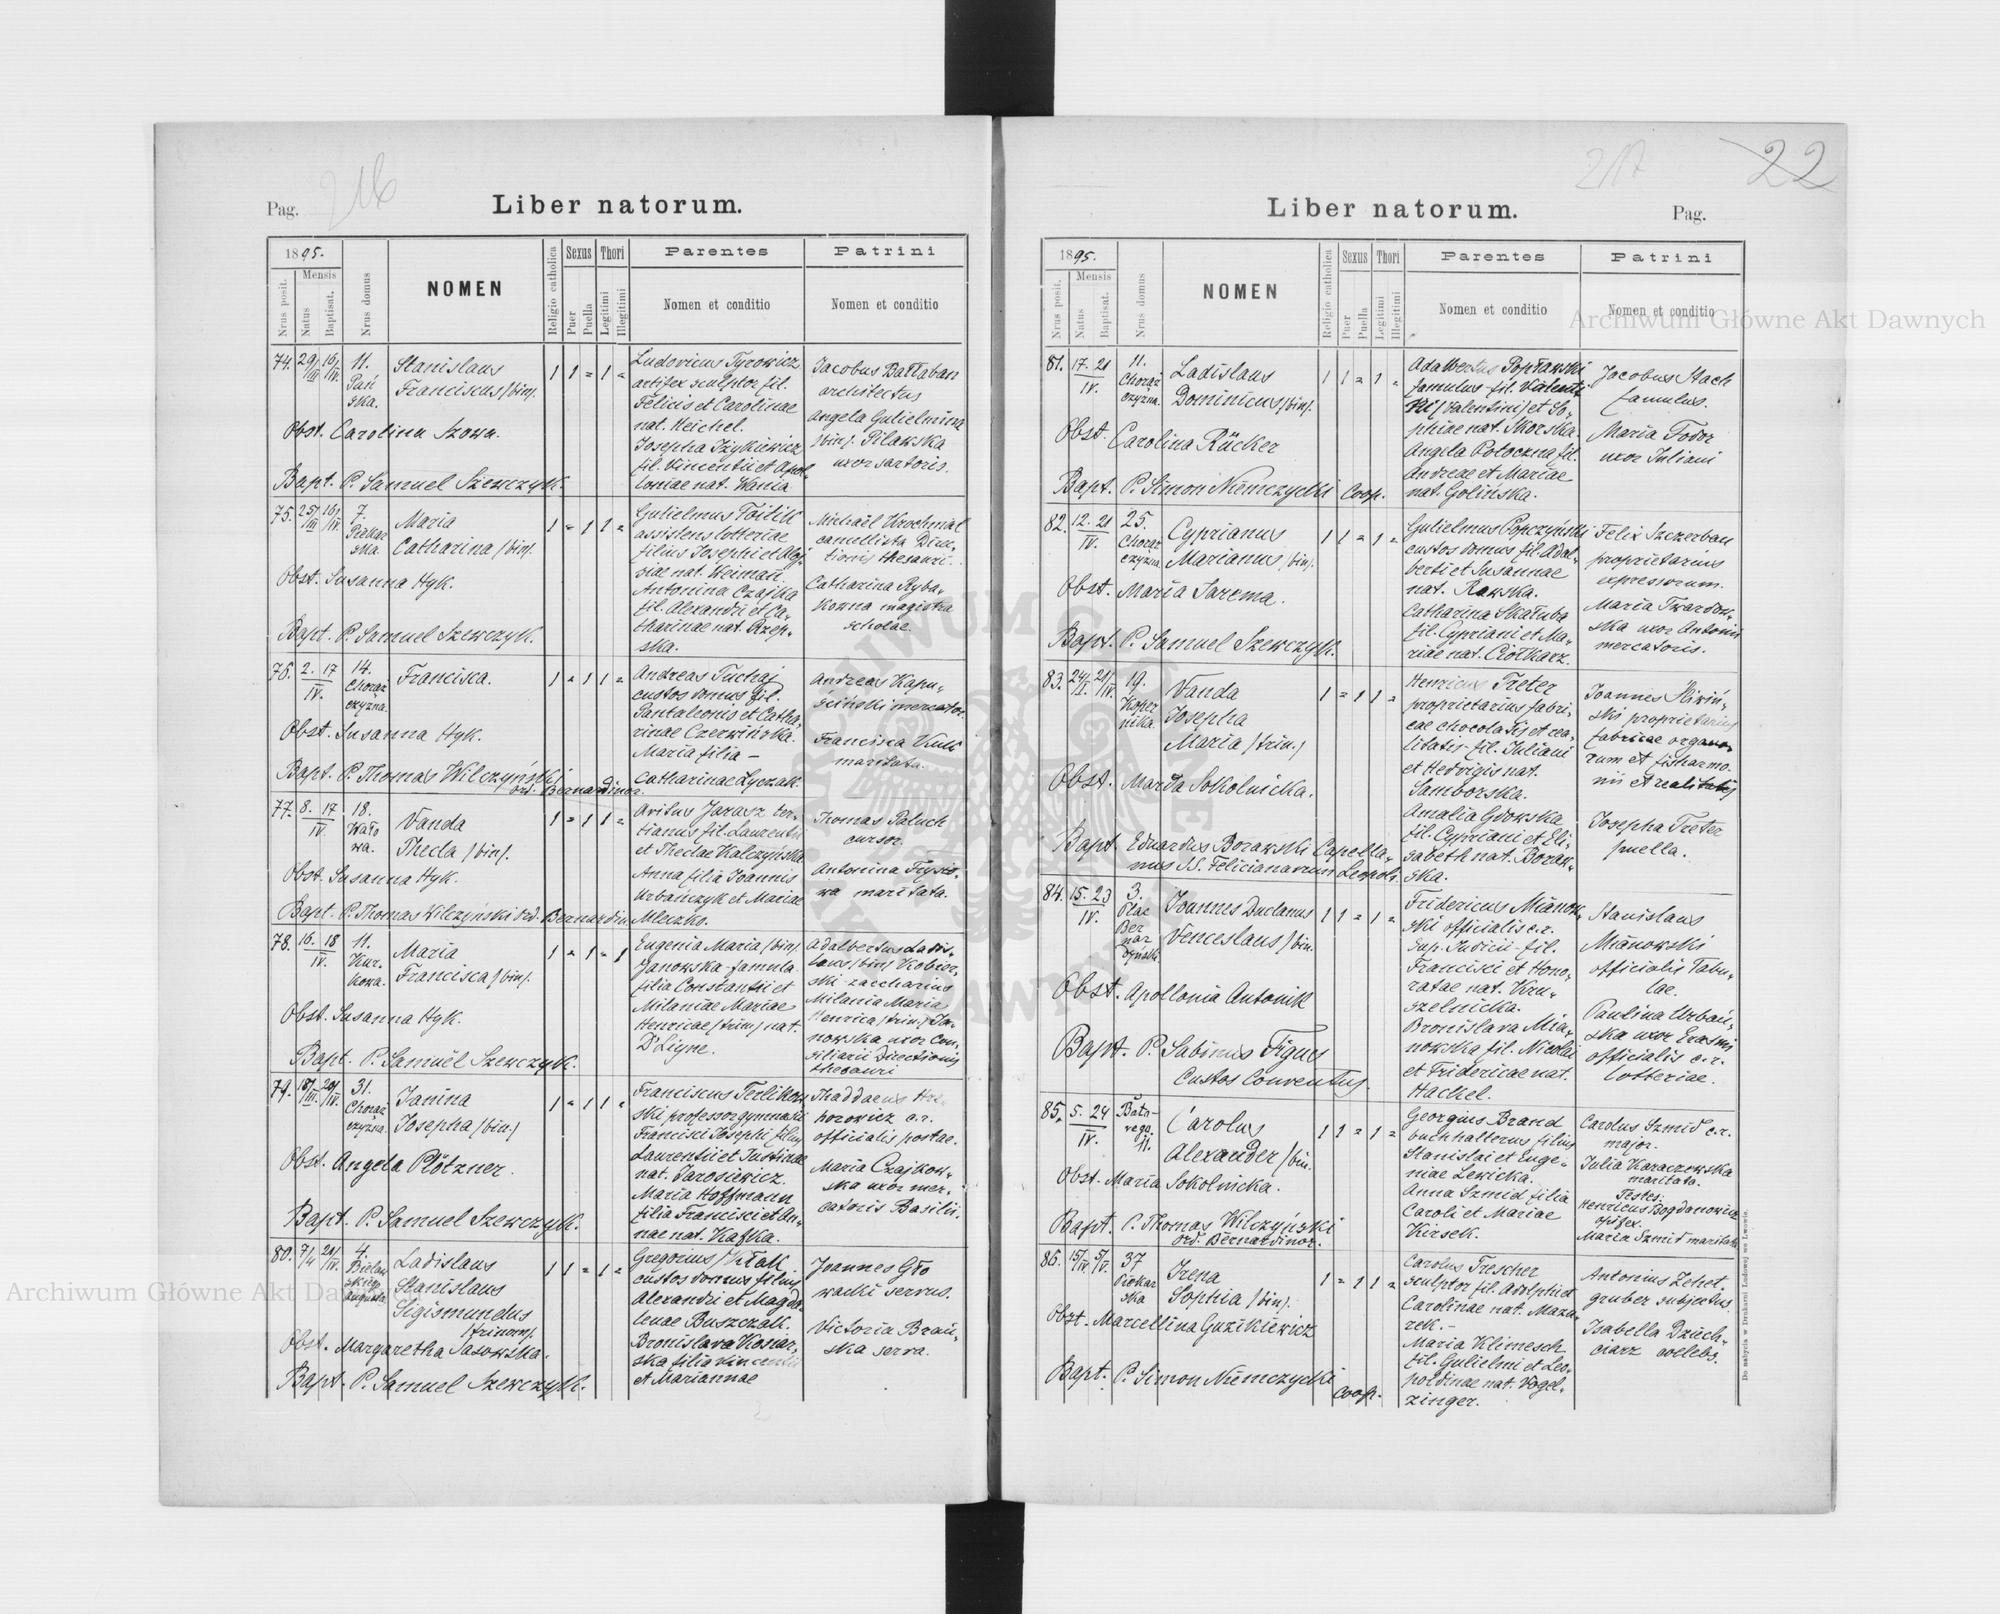 Pag. 216
Liber natorum.
1895.
Nrus posit.
Mensis
Natus
Baptisat.
Nrus domus
NOMEN
Religio catholica
Sexus
Puer
Puella
Thori
Legitimi
Illegitimi
Parentes
Nomen et conditio
Patrini
Nomen et conditio
74. 29/III 16/IV. 11. Pań
ska.
Stanislaus
Franciscus /bin/.
1 1 = 1 =
Obst. Carolina Szowa.
Bapt. P. Samuel Szewczyk.
Ludovicus Tyrowicz
artifex sculptor fil.
Felicis et Carolinae
nat. Heichel.
Josepha Dzykiewicz
fil. Vincentii et Apol-
loniae nat. Wania
Jacobus Bałaban
architectus
Angela Gulielmina
/bin/. Pilawska
uxor sartoris.
75. 25/III 16/IV 7.
Piekar
ska.
Maria
Catharina /bin/.
1 = 1 1 =
Obst. Susanna Hyk.
Bapt. P. Samuel Szewczyk.
Gulielmus Foitik
assistens lotteriae
filius Josephi et Aloy-
siae nat. Weiman.
Antonina Czajka
fil. Alexandri et Ca-
tharinae nat. Rzep-
ska.
Michaël Krochmal
cancellista Direc-
tionis thesauri.
Catharina Ryba-
kowna magistra
scholae.
76. 2. 17
IV.
14.
Chorąż
czyzna.
Francisca.
1 = 1 1 =
Obst. Susanna Hyk.
Bapt. P. Thomas Wilczyński
ord. Bernardinor.
Andreas Tuchaj
custos domus fil.
Pantaleonis et Catha-
rinae Czerwińska.
Maria filia —
Catharinae Łyczak.
Andreas Kapu-
ściński mercator.
Francisca Kulik
maritata.
77. 8. 17
IV.
18.
Wało
wa.
Vanda
Thecla /bin/.
1 = 1 1 =
Obst. Susanna Hyk.
Bapt. P. Thomas Wilczyński ord. Bernardin.
Avitus Jarasz ter-
tianus fil. Laurentii
et Theclae Kalczyńska
Anna filia Joannis
Urbańczyk et Mariae
Mleczko.
Thomas Paluch
cursor.
Antonina Frysio-
wa maritata.
78. 16. 18
IV.
11.
Kur-
kowa.
Maria
Francisca /bin/.
1 = 1 = 1
Obst. Susanna Hyk.
Bapt. P. Samuel Szewczyk.
Eugenia Maria /bin/
Janowska famula
filia Constantii et
Milaniae Mariae
Henricae /trin./ nat.
D'Ligne.
Adalbertus Ladis-
laus /bin/ Kobier-
ski zaccharius
Milania Maria
Henrica /trin./ Ja-
nowska uxor Con-
siliarii Directionis
thesauri
79. 18/III. 20/IV. 31.
Chorąż
czyzna.
Janina
Josepha /bin/
1 = 1 1 =
Obst. Angela Plötzner.
Bapt. P. Samuel Szewczyk.
Franciscus Terlikow
ski professor gymnasii
Francisci Josephi filius
Laurentii et Justinae
nat. Jarosiewicz.
Maria Hoffmann
filia Francisci et An-
nae nat. Kafka.
Thaddaeus
horowicz c.r.
officialis postae.
Maria Czajkow-
ska uxor mer-
catoris Basilii.
80. 7/4 21/IV. 4.
Bielow
skiego
Augusta.
Ladislaus
Stanislaus
Sigismundus
/trinom/.
1 1 = 1 =
Obst. Margaretha Sasowska.
Bapt. P. Samuel Szewczyk.
Gregorius
custos domus filius
Alexandri et Magda
lenae Buszczak.
Bronislava Kosiar-
ska filia Vincentii
et Mariannae
Joannes Gło
wacki servus.
Victoria Brań-
ska serva.
217 22
Liber natorum.
Pag.
1895.
Nrus posit.
Mensis
Natus
Baptisat.
Nrus domus
NOMEN
Religio catholica
Sexus
Puer
Puella
Thori
Legitimi
Illegitimi
Parentes
Nomen et conditio
Patrini
Nomen et conditio
81. 17. 21
IV.
11.
Chorąż
czyzna.
Ladislaus
Dominicus /bin/.
1 1 = 1 =
Obst. Carolina Rücker
Bapt. P. Simon Niemczycki Coop.
Adalbertus Popławski
famulus fil. Valenti
ni /Valentini/ et So-
phiae nat. Skorska.
Angela Poloczna fil.
Andreae et Mariae
nat. Golińska.
Jacobus Stach
famulus.
Maria Fodor
uxor Juliani
82. 12. 21
IV.
25.
Chorąż
czyzna.
Cyprianus
Marianus /bin/.
1 1 = 1 =
Obst. Maria Jarema.
Bapt. P. Samuel Szewczyk.
Gulielmus Popczyński
custos domus fil. Adal-
berti et Susannae
nat. Rawska.
Catharina Skałuba
fil. Cypriani et Ma-
riae nat. Ciołkarz.
Felix Szczerban
proprietarius
expressorum.
Maria Twardow-
ska uxor Antonii
mercatoris.
83. 24/II. 21/IV. 19.
Koper
nika.
Vanda
Josepha
Maria /trin./
1 = 1 1 =
Obst. Maria Sokolnicka.
Bapt. Eduardus Borawski Capella-
nus SS. Felicianarum Leopoli.
Henricus Treter
proprietarius fabri-
cae chocolatis et rea-
litatis fil. Juliani
et Hedvigis nat.
Samborska.
Amalia Gdowska
fil. Cypriani et Eli-
sabeth nat. Boraw-
ska.
Joannes Śliwiń-
ski proprietarius
fabricae organo-
rum et fisharmo-
nii et realitatis
Josepha Treter
puella.
84. 15. 23
IV.
3.
Plac
Ber
nar
dyński
Joannes Duclanus
Venceslaus /bin.
1 1 = 1 =
Obst. Apollonia Antonik
Bapt. P. Sabinus Figus
Custos Conventus.
Fridericus Mianow-
ski officialis c.r.
sup. Judicii fil.
Francisci et Hono-
ratae nat. Kru-
szelnicka.
Bronislava Mia-
nowska fil. Nicolai
et Fridericae nat.
Hackel.
Stanislaus
Mianowski
officialis Tabu-
lae.
Paulina Urbań-
ska uxor Erasmi
officialis c.r.
lotteriae.
85. 5. 24
IV.
Bato-
rego
11.
Carolus
Alexander /bin.
1 1 = 1 =
Obst. Maria Sokolnicka.
Bapt. P. Thomas Wilczyński
ord. Bernardinor.
Georgius Brand
buchhalterus filius
Stanislai et Euge-
niae Lewicka.
Anna Szmid filia
Caroli et Mariae
Hirsek.
Carolus Szmid c.r.
major.
Julia Karaczewska
maritata.
Testes:
Henricus Bogdanowicz
opifex.
Maria Szmit maritata
86. 15/IV 5/V. 37
Piekar
ska
Irena
Sophia /bin/.
1 = 1 1 =
Obst. Marcellina Guzikiewicz
Bapt. P. Simon Niemczycki
Coop.
Carolus Trescher
sculptor fil. Adolphi et
Carolinae nat. Mazu-
rek.—
Maria Klimesch
fil. Gulielmi et Leo-
poldinae nat. Vogel-
zinger.
Antonius Zehet-
gruber subjectus.
Isabella Dziech-
ciarz coelebs.
Do nabycia w Drukarni Ludowej we Lwowie.
Archiwum Główne Akt Dawnych
Archiwum Główne Akt Dawnych